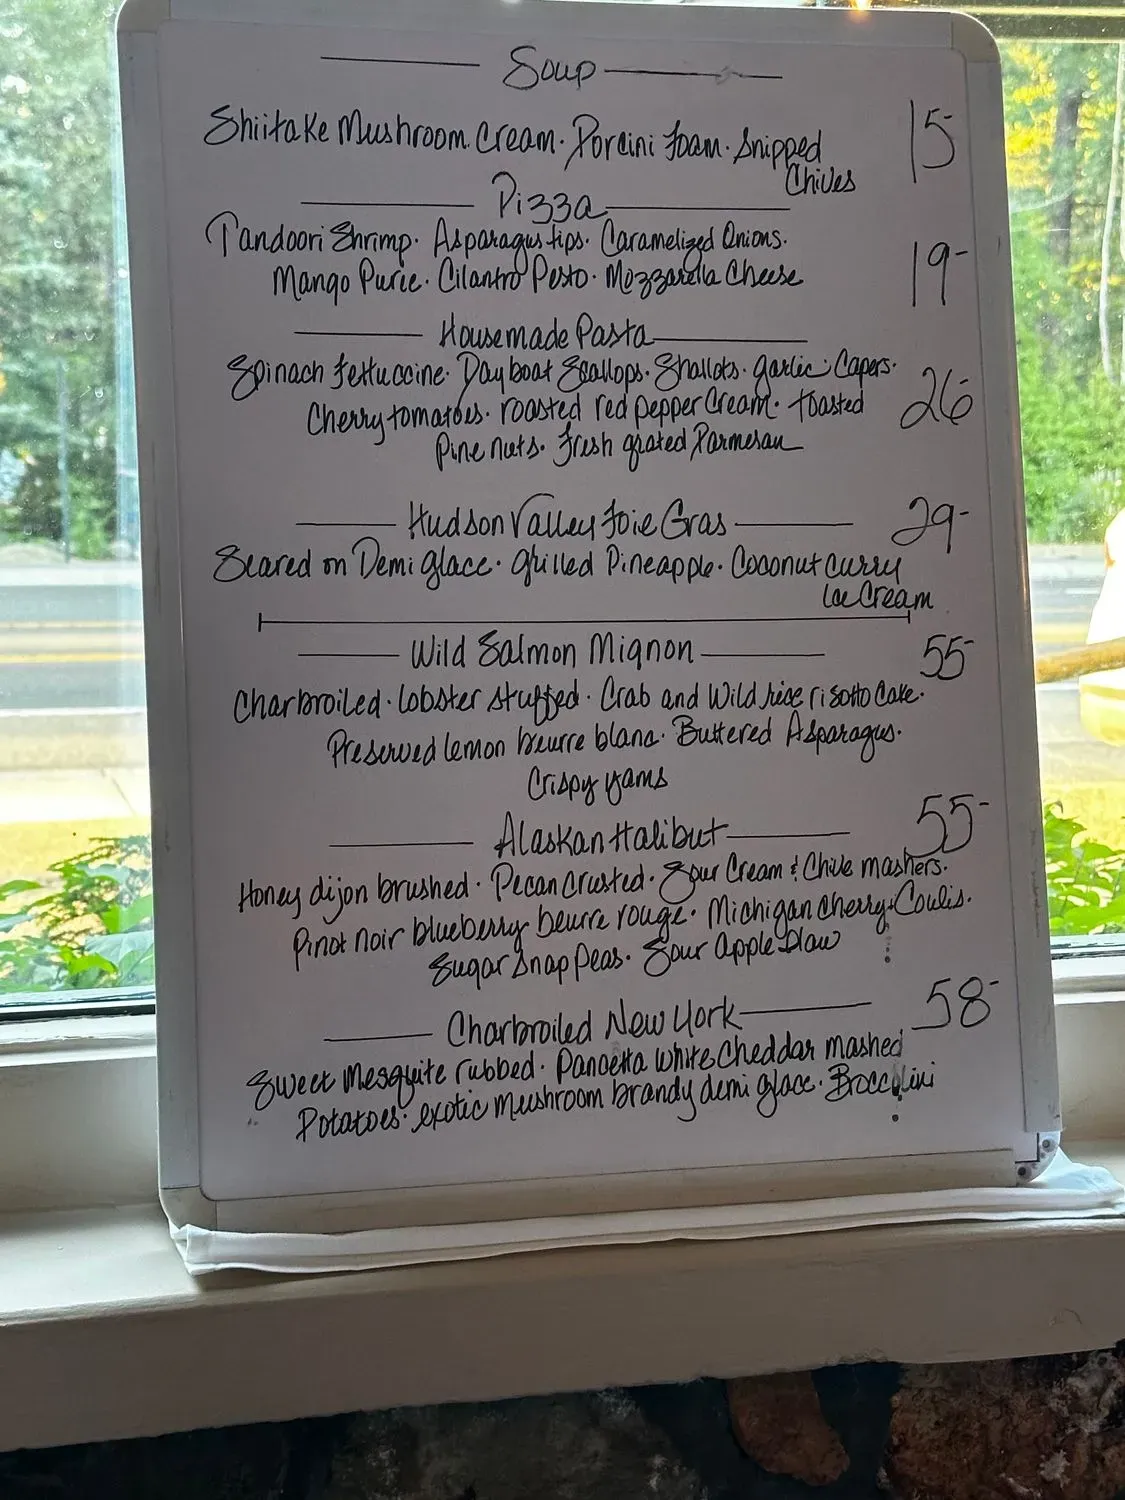 Soup
Shiitake Mushroom Cream. Porcini Foam. Snipped
Chives
15-
Pizza
Tandoori Shrimp. Asparagus tips. Caramelized Onions.
Mango Puree. Cilantro Pesto. Mozzarella Cheese
19-
Housemade Pasta
Spinach Fettuccine. Dayboat Scallops. Shallots. garlic. Capers.
Cherry tomatoes. roasted red pepper Cream. toasted
Pine nuts. Fresh grated Parmesan
26-
Hudson Valley Foie Gras
29-
Seared on Demi Glace. Grilled Pineapple. Coconut Curry
Ice Cream
Wild Salmon Mignon
55-
Charbroiled. lobster stuffed. Crab and Wild rice risotto Cake.
Preserved lemon beurre blanc. Buttered Asparagus.
Crispy yams
Alaskan Halibut
55-
Honey dijon brushed. Pecan Crusted. Sour Cream & Chive mashers.
Pinot noir blueberry beurre rouge. Michigan cherry Coulis.
Sugar Snap Peas. Sour apple Slaw
Charbroiled New York
58-
Sweet Mesquite rubbed. Pancetta White Cheddar mashed
Potatoes. exotic mushroom brandy demi glace. Broccolini